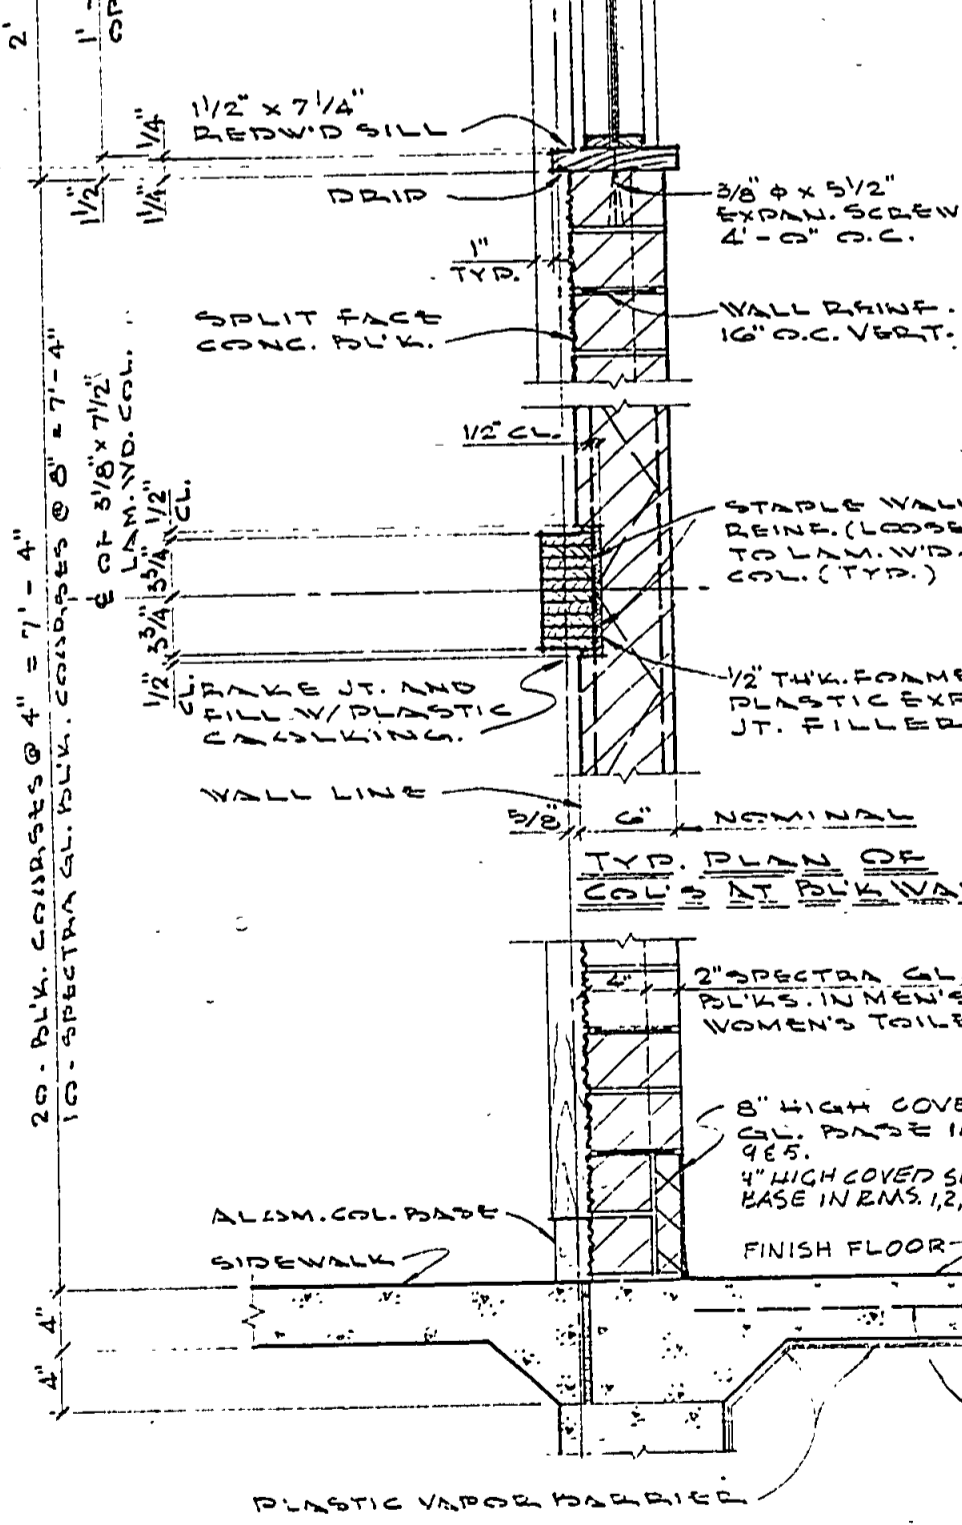 2'
1'-
1 1/2" x 7 1/4"
REDW'D SILL
1/4"
1 1/2"
1 1/4"
DRIP
3/8" ϕ x 5 1/2"
EXPAN. SCREW
4'-0" O.C.
1"
TYP.
SPLIT FACE
CONC. BL'K.
WALL REINF.
16" O.C. VERT.
20 - BL'K. COURSES @ 4" = 7'-4"
10 - SPECTRA GL. BL'K. COURSES @ 8" = 7'-4"
℄ OF 3 1/8" x 7 1/2"
LAM. WD. COL.
1/2" CL.
1/2"
CL.
3 3/4"
3 3/4"
1/2"
CL.
STAPLE WALL
REINF. (LOOSE
TO LAM. W'D.
COL. (TYP.)
RAKE JT. AND
FILL W/ PLASTIC
CAULKING.
1/2" TH'K. FOAME
PLASTIC EXP
JT. FILLER
WALL LINE
5/8"
6"
NOMINAL
TYP. PLAN OF
COL'S AT BL'K WA
4"
2" SPECTRA GL
BL'KS. IN MEN'S
WOMEN'S TOILE
8" HIGH COVE
GL. BASE I
9 & 5.
4" HIGH COVED S
BASE IN RMS. 1, 2,
ALUM. COL. BASE
SIDEWALK
FINISH FLOOR
4"
4"
PLASTIC VAPOR BARRIER